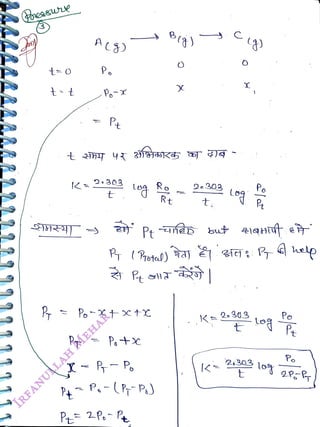 Pressure
③
A(g) → B(g) → C(g)
t=0 P₀ 0 0
t=t P₀-x x x
= Pt
t समय पर अभिकारक का दाब -
K = 2.303/t log R₀/Rt = 2.303/t. log P₀/Pt
समस्या → हमें Pt चाहिए but
PT (Ptotal) देता है। अतः PT की help
से Pt ज्ञात करेंगे।
PT = P₀-x+x+x
PT = P₀+x
x = PT - P₀
Pt = P₀-(PT-P₀)
Pt = 2P₀-Pt
K = 2.303/t log P₀/Pt
K = 2.303/t log P₀/2P₀-PT
IRFANULLAH MEHAR